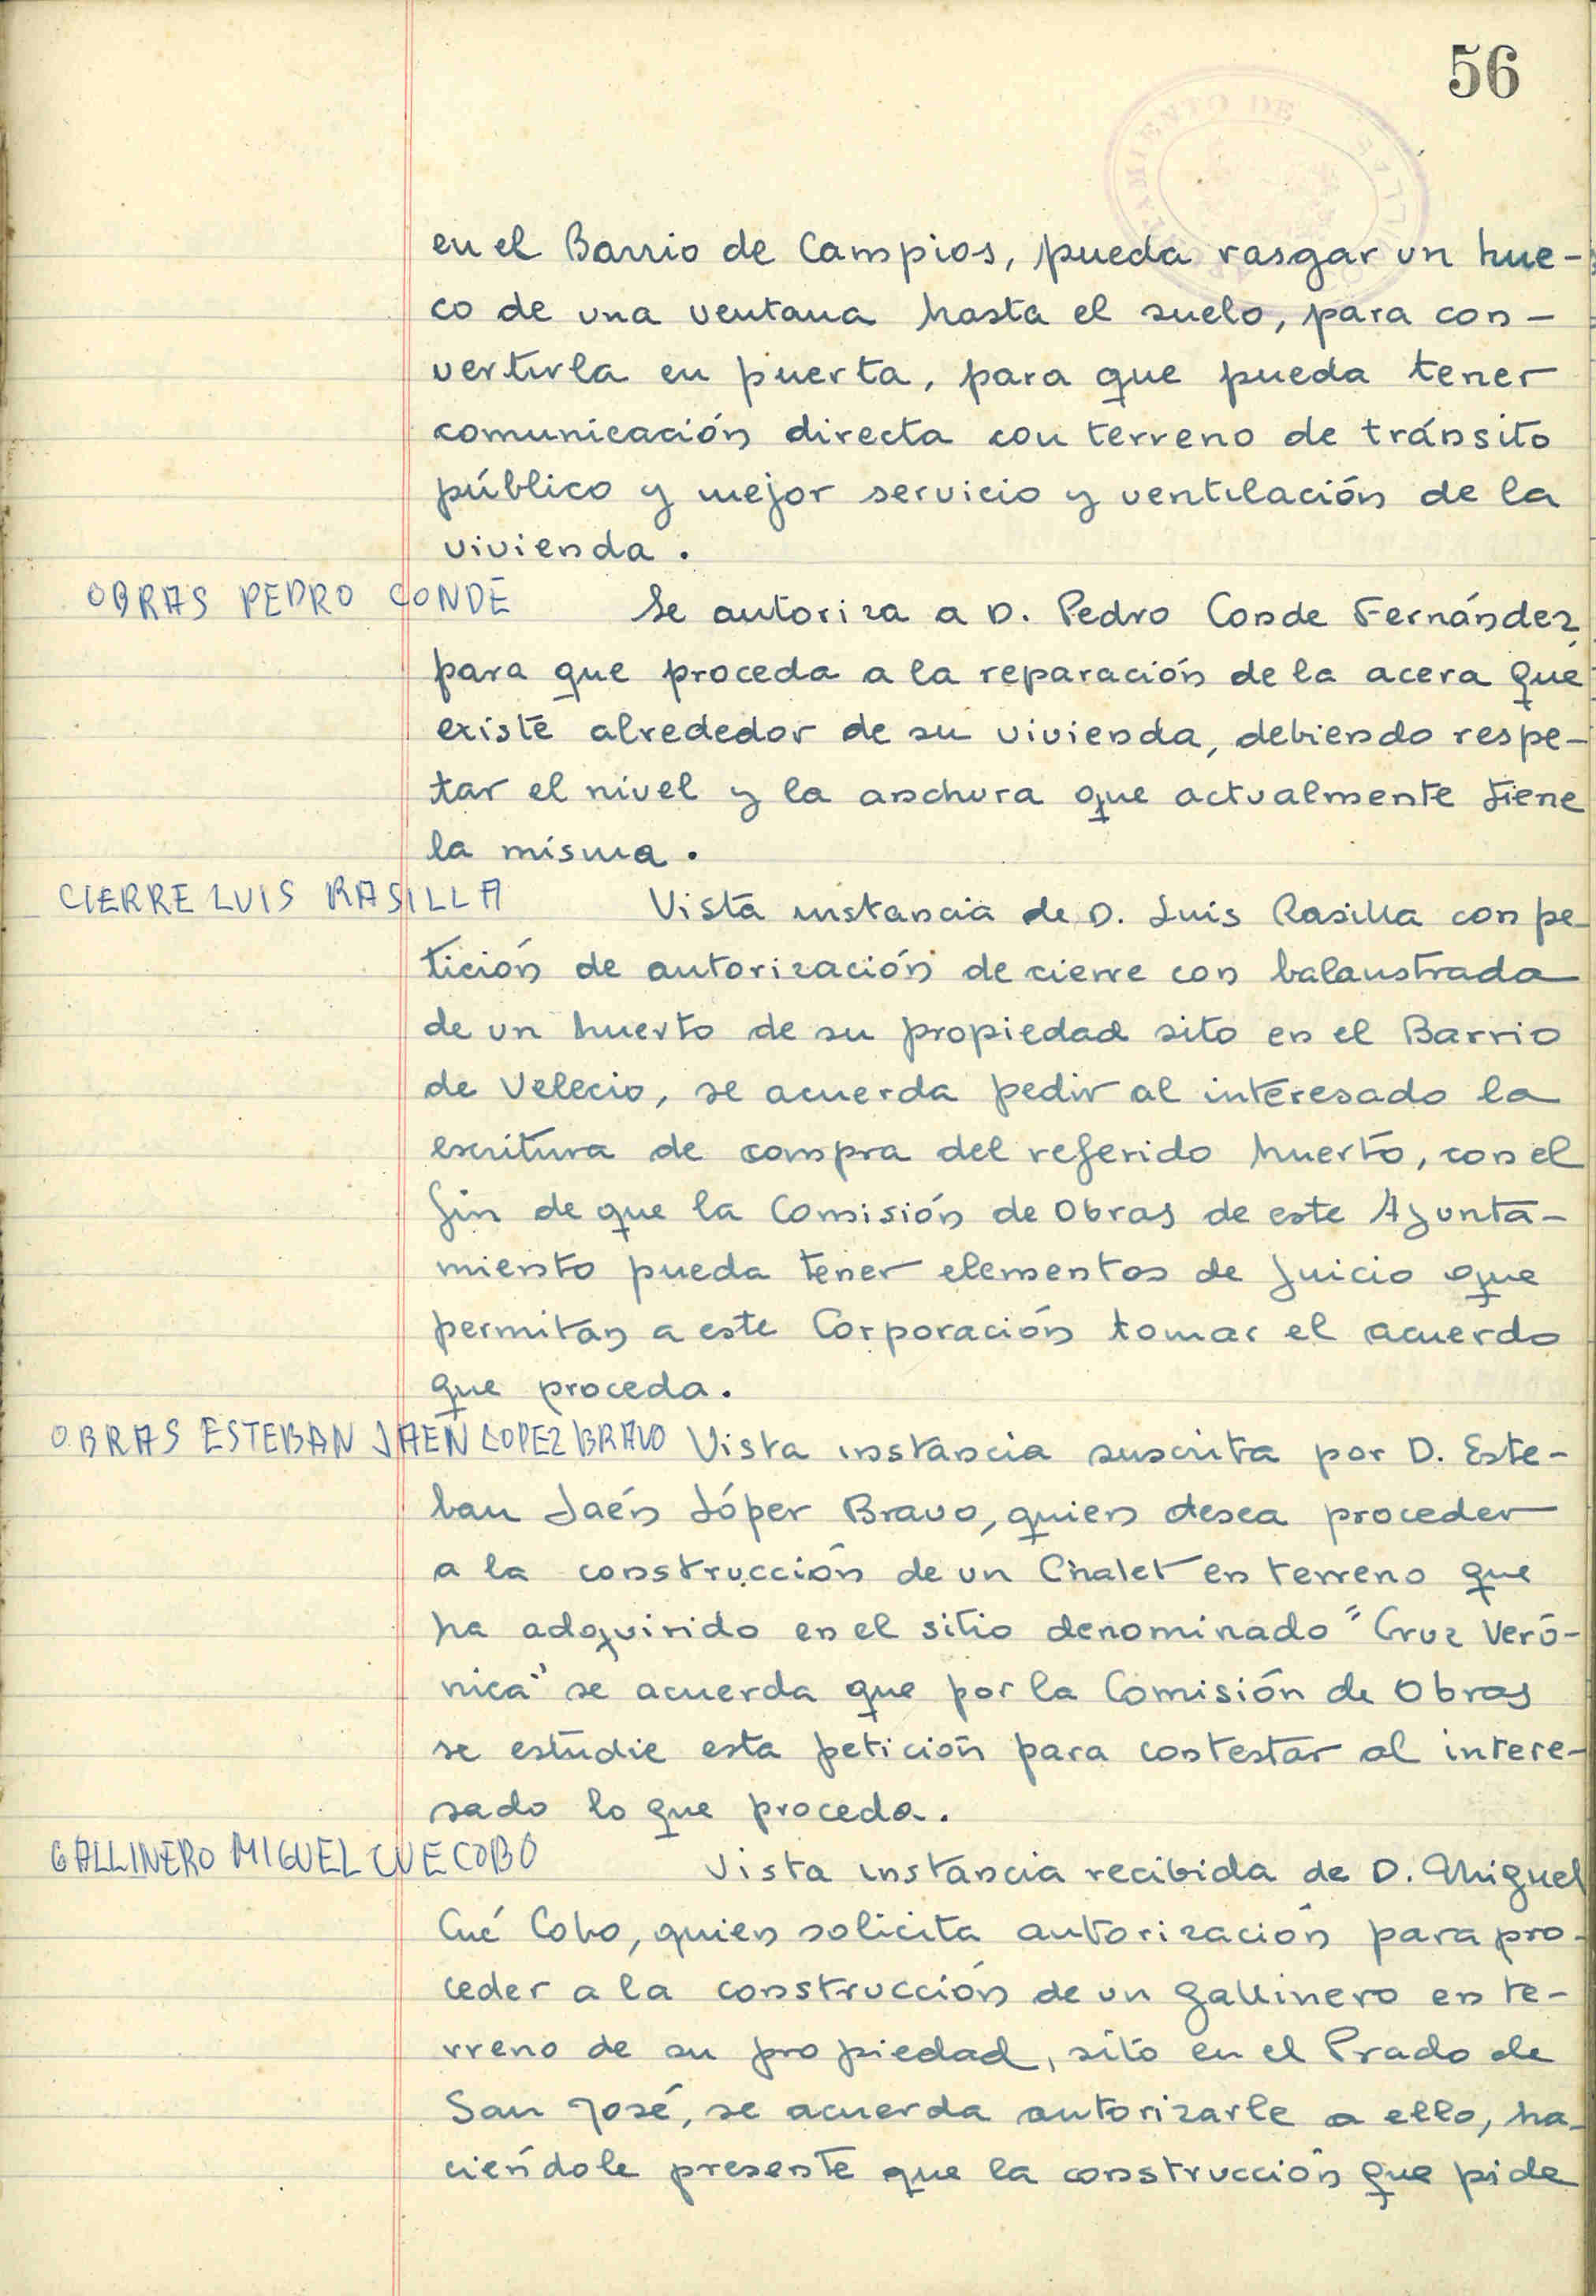 56
en el Barrio de Campios, pueda rasgar un hue-
co de una ventana hasta el suelo, para con-
vertirla en puerta, para que pueda tener
comunicación directa con terreno de tránsito
público y mejor servicio y ventilación de la
vivienda.
OBRAS PEDRO CONDE
Se autoriza a D. Pedro Conde Fernández,
para que proceda a la reparación de la acera que
existe alrededor de su vivienda, debiendo respe-
tar el nivel y la anchura que actualmente tiene
la misma.
CIERRE LUIS RASILLA
Vista instancia de D. Luis Rasilla con pe-
tición de autorización de cierre con balaustrada
de un huerto de su propiedad sito en el Barrio
de Velecio, se acuerda pedir al interesado la
escritura de compra del referido huerto, con el
fin de que la Comisión de Obras de este Ayunta-
miento pueda tener elementos de juicio que
permitan a este Corporación tomar el acuerdo
que proceda.
OBRAS ESTEBAN JAEN LOPEZ BRAVO
Vista instancia suscrita por D. Este-
ban Jaén López Bravo, quien desea proceder
a la construcción de un Chalet en terreno que
ha adquirido en el sitio denominado "Cruz Veró-
nica" se acuerda que por la Comisión de Obras
se estudie esta petición para contestar al intere-
sado lo que proceda.
GALLINERO MIGUEL CUE COBO
Vista instancia recibida de D. Miguel
Cué Cobo, quien solicita autorización para pro-
ceder a la construcción de un gallinero en te-
rreno de su propiedad, sito en el Prado de
San José, se acuerda autorizarle a ello, ha-
ciéndole presente que la construcción que pide